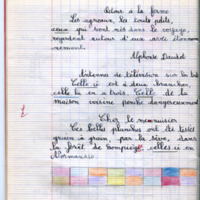 Retour à la ferme
Les agneaux, les touts petits,
ceux qui sont nés dans le voyage,
regardent autour d'eux avec étonne
nement.
Alphonse Daudet
Antennes de télévision sur les toits
Celle ci est à deux branches,
celle là en a trois. Celle de la
maison voisine penche dangereusement
Chez le menuisier
Ces belles planches ont été tirées
grain à grain, par la sève, dans
la forêt de Compiègne, celles ci en
Normandie.